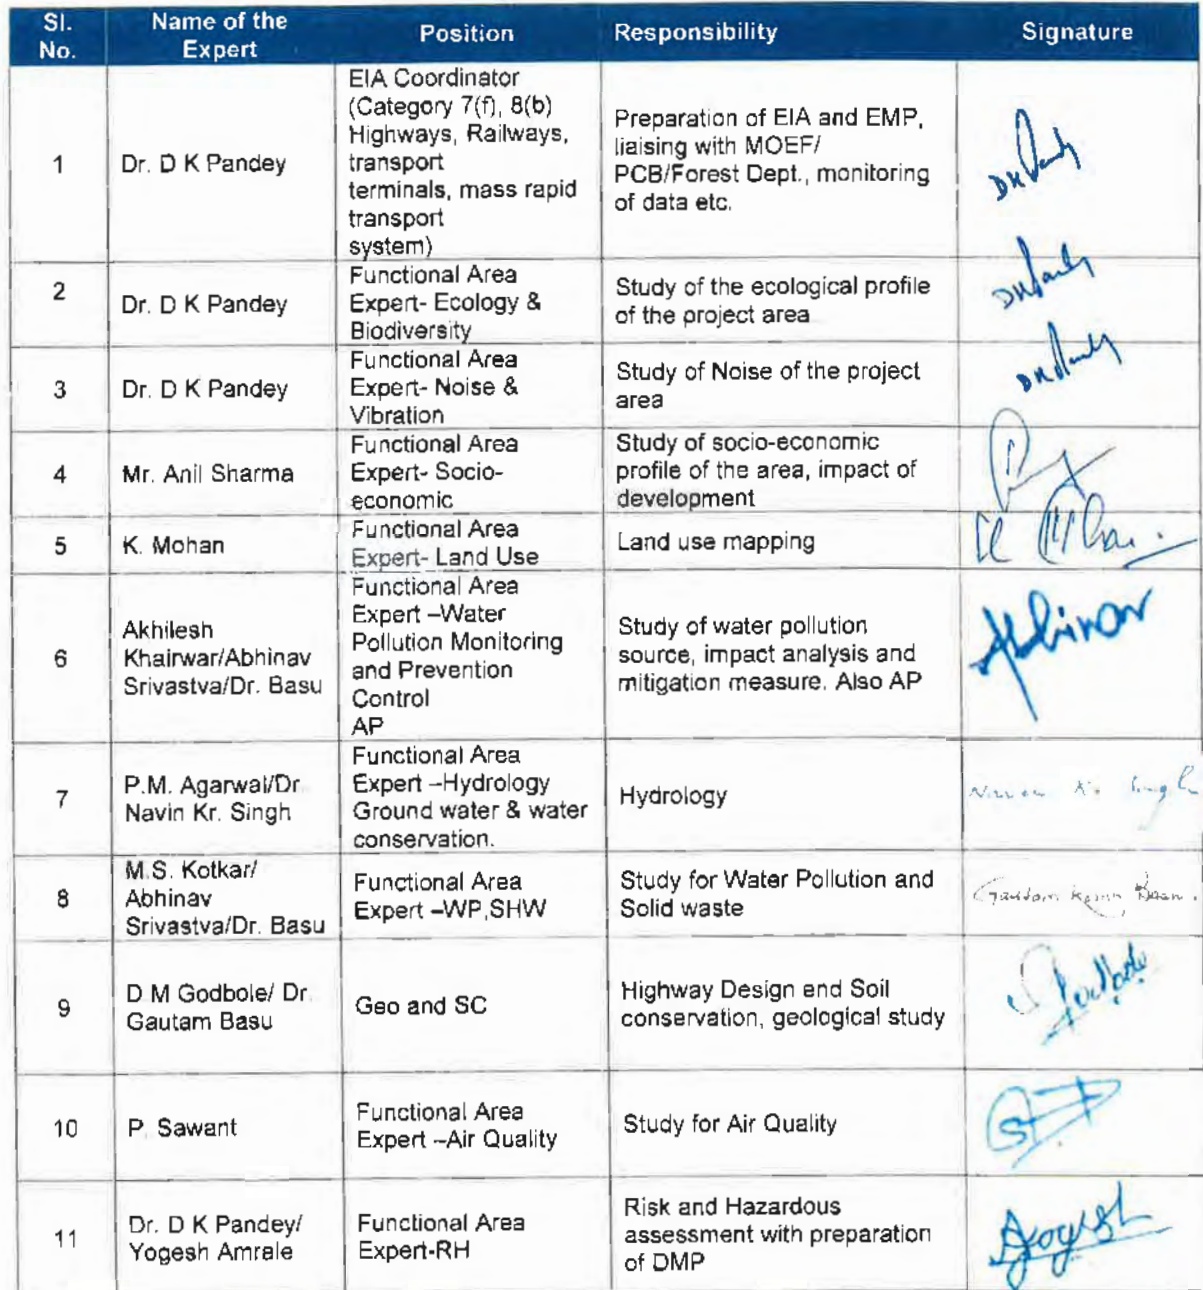 Sl. No.
Name of the Expert
Position
Responsibility
Signature
1
Dr. D K Pandey
EIA Coordinator
(Category 7(f), 8(b)
Highways, Railways,
transport
terminals, mass rapid
transport
system)
Preparation of EIA and EMP,
liaising with MOEF/
PCB/Forest Dept., monitoring
of data etc.
DK Pandey
2
Dr. D K Pandey
Functional Area
Expert- Ecology &
Biodiversity
Study of the ecological profile
of the project area
DK Pandey
3
Dr. D K Pandey
Functional Area
Expert- Noise &
Vibration
Study of Noise of the project
area
DK Pandey
4
Mr. Anil Sharma
Functional Area
Expert- Socio-
economic
Study of socio-economic
profile of the area, impact of
development
5
K. Mohan
Functional Area
Expert- Land Use
Land use mapping
6
Akhilesh
Khairwar/Abhinav
Srivastva/Dr. Basu
Functional Area
Expert –Water
Pollution Monitoring
and Prevention
Control
AP
Study of water pollution
source, impact analysis and
mitigation measure. Also AP
Abhinav
7
P.M. Agarwal/Dr.
Navin Kr. Singh
Functional Area
Expert –Hydrology
Ground water & water
conservation.
Hydrology
Singh
8
M.S. Kotkar/
Abhinav
Srivastva/Dr. Basu
Functional Area
Expert –WP,SHW
Study for Water Pollution and
Solid waste
Gautam Kumar Basu.
9
D M Godbole/ Dr.
Gautam Basu
Geo and SC
Highway Design end Soil
conservation, geological study
Godbole
10
P. Sawant
Functional Area
Expert –Air Quality
Study for Air Quality
11
Dr. D K Pandey/
Yogesh Amrale
Functional Area
Expert-RH
Risk and Hazardous
assessment with preparation
of DMP